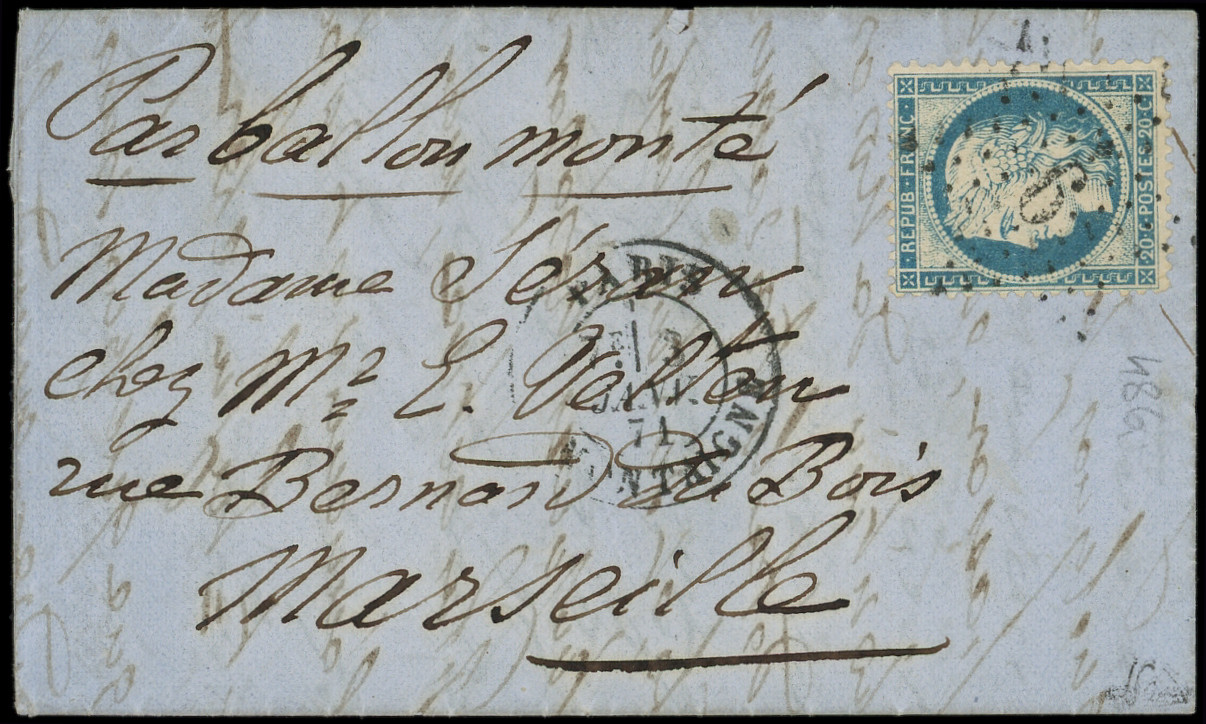 Par ballon monté
Madame
chez Mr. E.
rue Bernard du Bois
Marseille
REPUB·FRANC·
20·c·POSTES·20·c
PARIS
3
JANV.
71
6
486